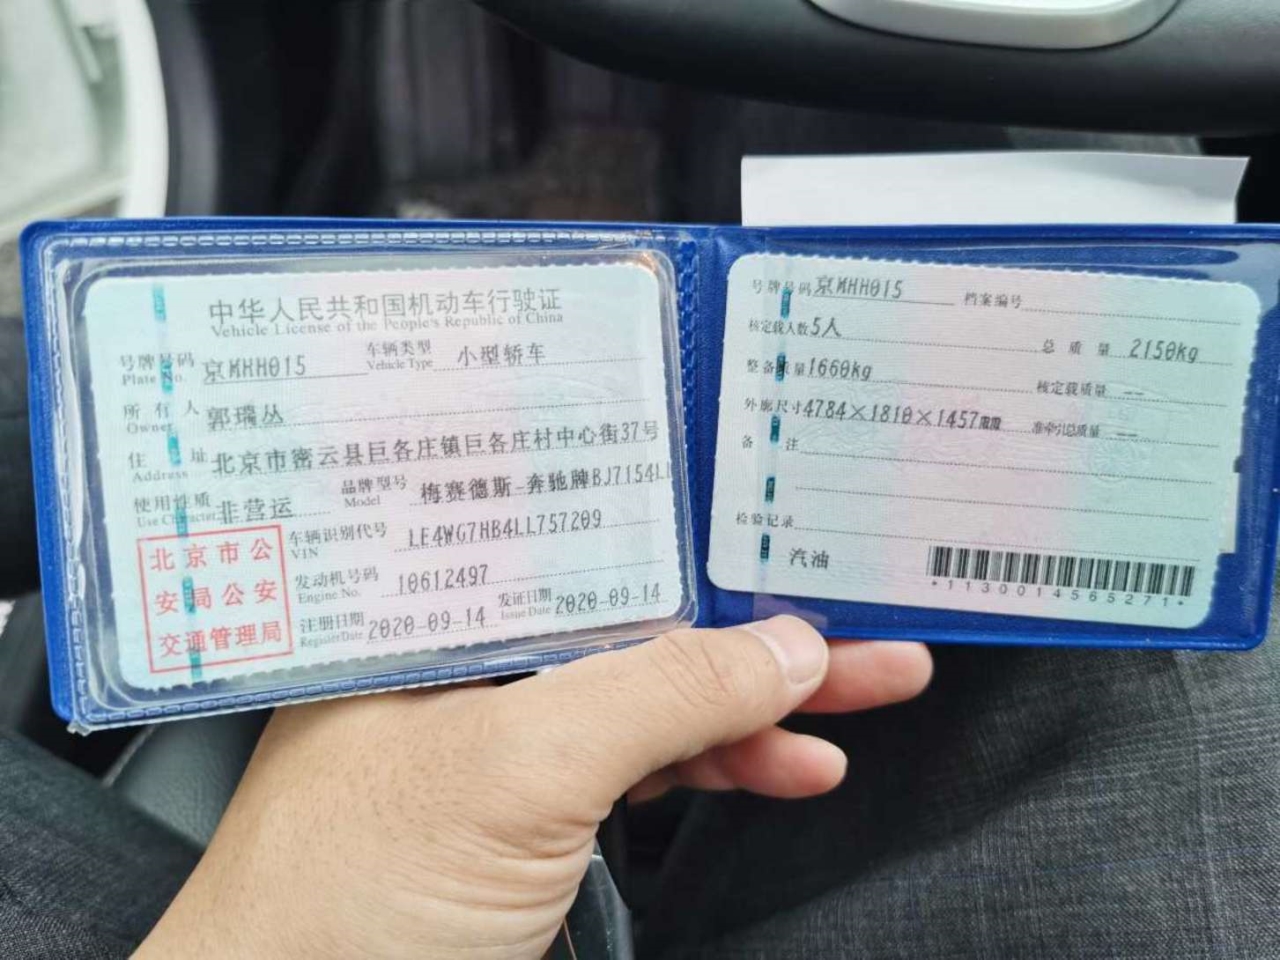 中华人民共和国机动车行驶证
Vehicle License of the People's Republic of China
号牌号码 京MHH015 车辆类型 小型轿车
Plate No. Vehicle Type
所有人 郭瑞丛
Owner
住址 北京市密云县巨各庄镇巨各庄村中心街37号
Address
使用性质 非营运 品牌型号 梅赛德斯-奔驰牌BJ7154L
Use Character Model
车辆识别代号 LE4WG7HB4LL757209
VIN
发动机号码 10612497
Engine No.
注册日期 2020-09-14 发证日期 2020-09-14
Register Date Issue Date
北京市公
安局公安
交通管理局
号牌号码 京MHH015 档案编号
核定载人数 5人 总质量 2150kg
整备质量 1660kg 核定载质量 --
外廓尺寸 4784×1810×1457mm 准牵引总质量 --
备注
检验记录
汽油
*1130014565271*